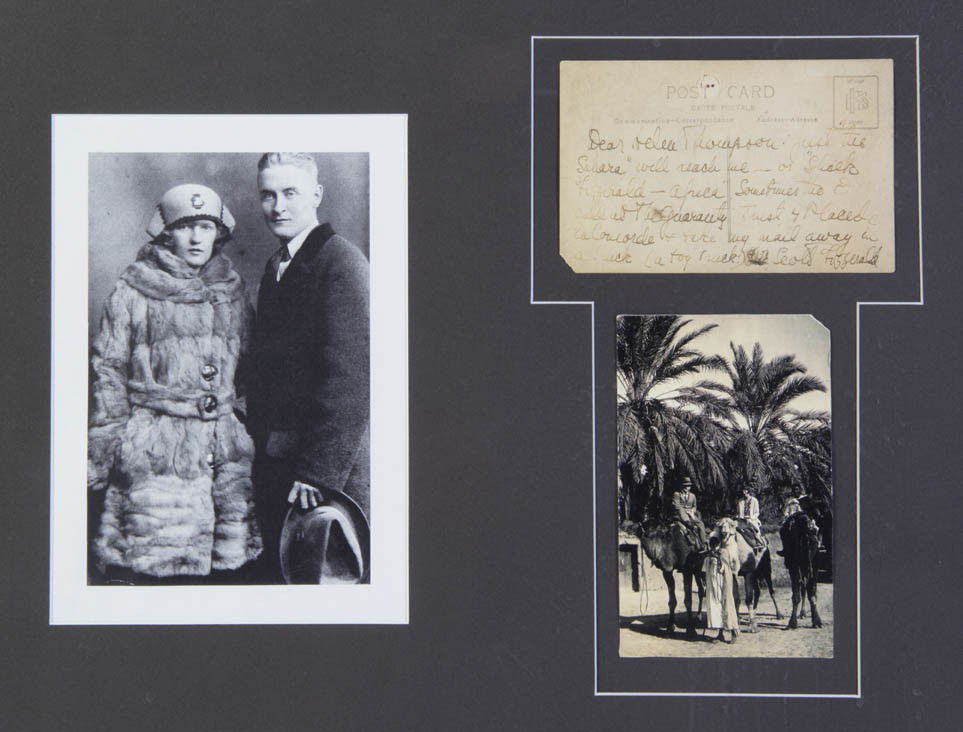 POST CARD
CARTE POSTALE
Communication-Correspondance Address-Adresse
Dear Helen Thompson: just the
Sahara" will reach me — or "Shieks
Fitzgerald — Africa" Sometimes tho I
at The Guaranty Trust 4 Place de
la Concorde & take my mail away in
a truck (a toy truck) Scott Fitzgerald